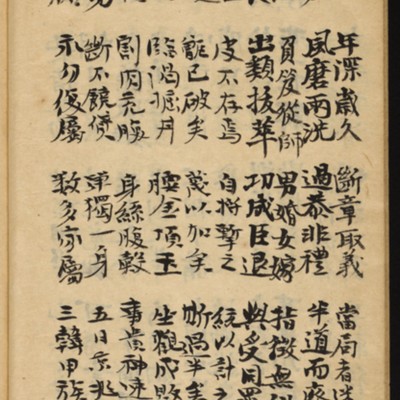 年深歲久 斷章取義 當局者迷
風磨雨洗 過恭非禮 半道而廢
負笈從師 男婚女嫁 指
出類拔萃 功成臣退 與受同罪
皮不存焉 自將擊之 統以計之
甑已破矣 蔑以加矣 斯過半矣
臨渴掘井 腰金頂玉 坐觀成敗
割肉充腹 身絲腹穀 事貴神速
斷不饒貸 單獨一身 五日京兆
永勿復屬 數多家屬 三韓甲族